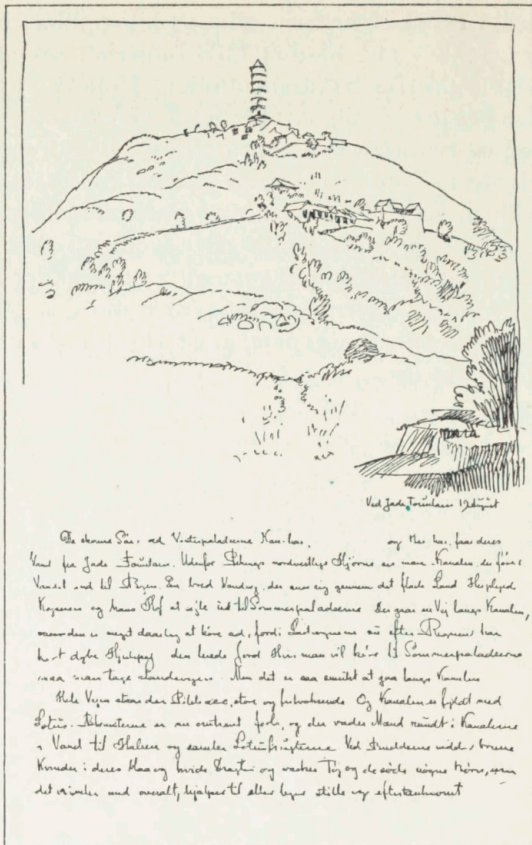 Ved Jade Fontænen 19 August
De skønne Søer ved Vinterpaladserne Nan-hai, og Pei hai, faar deres
Vand fra Jade Fontænen. Udenfor Pekings nordvestlige Hjørne ser man Kanalen, der fører
Vandet ind til Byen. En bred Vandvej, der snor sig gennem det flade Land. Her plejede
Kejseren og hans Hof at sejle ud til Sommerpaladserne. Der gaar en Vej langs Kanalen,
men den er meget daarlig at køre ad, fordi Lastvognene nu efter Regnen har
kørt dybe Hjulspor i den bløde Jord. Hvis man vil køre til Sommerpaladserne
maa man tage Landevejen. Men det er saa smukt at gaa langs Kanalen
Hele Vejen staar der Piletræer, store og
Og Kanalen er fyldt med
Lotus. Blomsterne er nu omtrent forbi, og der vader Mænd rundt i Kanalerne
i Vand til Halsen og samler Lotusfrugterne. Ved Bredderne sidder
Kvinder i deres blaa og hvide Dragter og vasker Tøj og de søde nøgne Børn, som
det vrimler med overalt, hjælper til eller leger stille og eftertænksomt